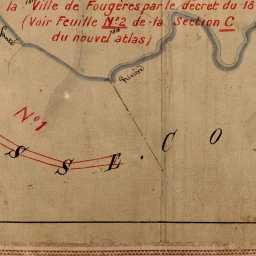 la Ville de Fougères par le décret du 18
(Voir Feuille N°2 de la Section C
du nouvel atlas)
Rivière
N°1
S S E . C O